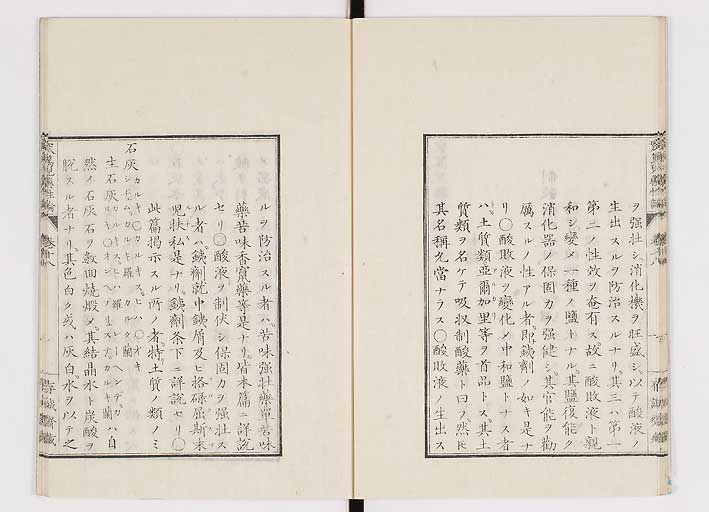 ヲ強壮シ消化機ヲ旺盛シ以テ酸液ノ
生出スルヲ防治スルナリ其三ハ第一
第二ノ性效ヲ奄有ス故ニ酸敗液ト親
和シ變メ一種ノ鹽トナル其鹽復能ク
消化器ノ保固力ヲ強健シ其官能ヲ勸
厲スルノ性アル者即鐵劑ノ如キ是ナ
リ○酸敗液ヲ變化メ中和鹽トナス者
ハ土質類亞爾加里等ヲ首品トス其土
質類ヲ名ケテ吸収制酸藥ト曰フ然𪜈
其名稱允當ナラス○酸敗液ノ生出ス
ルヲ防治スル者ハ苦味強壮藥單苦味
藥苦味香竄藥等是ナリ皆本篇ニ詳說
セリ○酸液ヲ制伏シ保固力ヲ強壮ス
ル者ハ鐵劑就中鐵屑及ヒ格碌屈斯末
児扶私是ナリ鐵劑条下ニ詳說セリ○
此篇揭示スル所ノ者特土質ノ類ノミ
石灰
生石灰 ハ自
然ノ石灰石ヲ數回燒煆メ其結晶水ト炭酸ヲ
脫スル者ナリ其色白ク或ハ灰白水ヲ以テ之